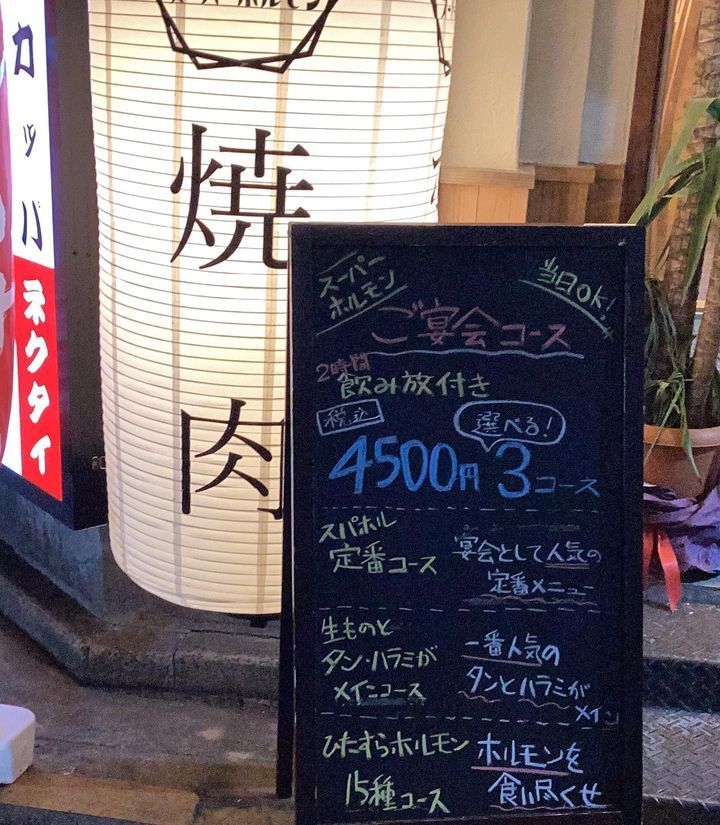 スーパーホルモン
焼肉
カッパ
ネクタイ
スーパー
ホルモン
当日OK!
ご宴会コース
2時間
飲み放付き
税込
選べる!
4500円 3コース
スパホル
定番コース
宴会として人気の
定番メニュー
生ものと
タン・ハラミが
メインコース
一番人気の
タンとハラミが
メイン
ひたすらホルモン
15種コース
ホルモンを
食い尽くせ